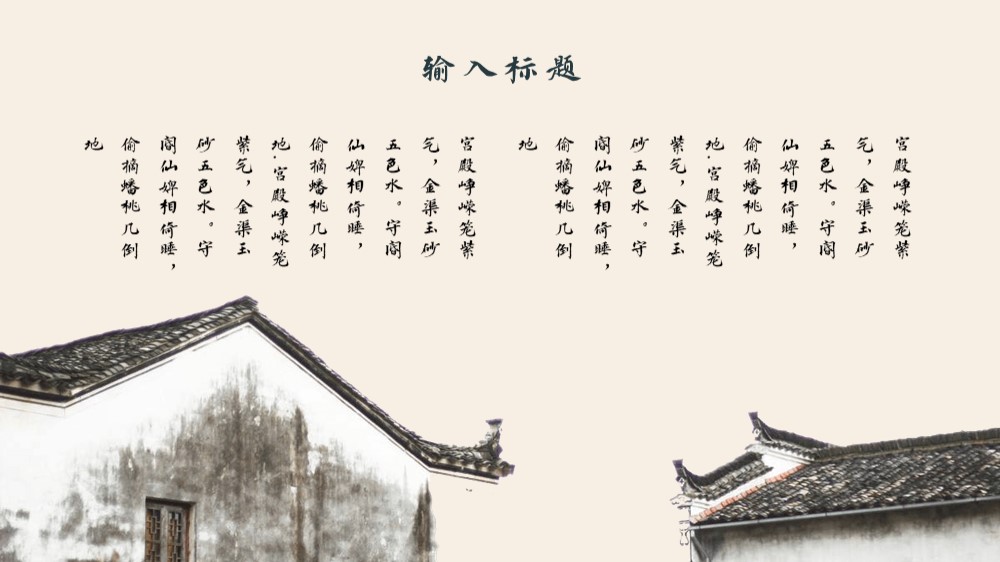 输入标题
宫殿峥嵘笼紫
气，金渠玉砂
五色水。守阍
仙婢相倚睡，
偷摘蟠桃几倒
地.宫殿峥嵘笼
紫气，金渠玉
砂五色水。守
阍仙婢相倚睡，
偷摘蟠桃几倒
地
宫殿峥嵘笼紫
气，金渠玉砂
五色水。守阍
仙婢相倚睡，
偷摘蟠桃几倒
地.宫殿峥嵘笼
紫气，金渠玉
砂五色水。守
阍仙婢相倚睡，
偷摘蟠桃几倒
地